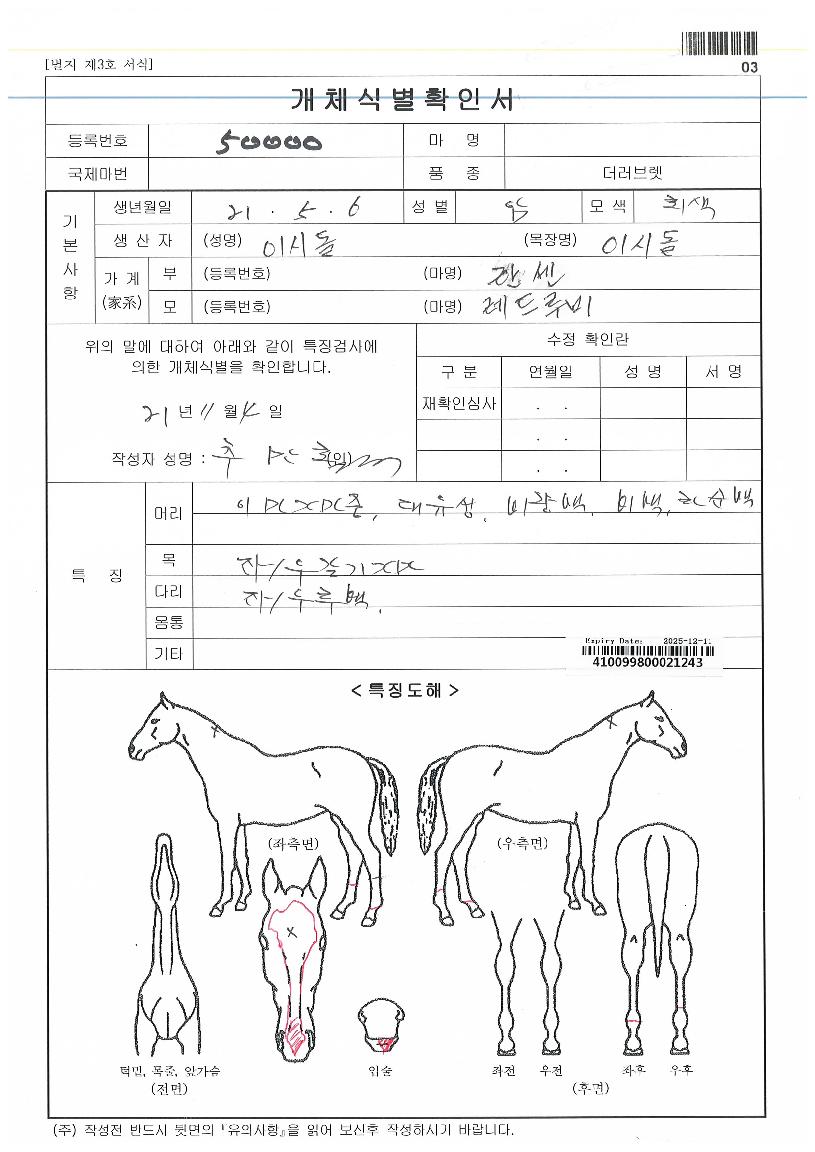 03
[별지 제3호 서식]
개체식별확인서
등록번호 50000 마 명
국제마번 품 종 더러브렛
기본사항
생년월일 21 . 5 . 6 성 별 암 모 색 회색
생 산 자 (성명) 이시돌 (목장명) 이시돌
가 계 (家系) 부 (등록번호) (마명) 한센
모 (등록번호) (마명) 레드루비
위의 말에 대하여 아래와 같이 특징검사에
의한 개체식별을 확인합니다.
21 년 11 월 4 일
작성자 성명 : (인)
수정 확인란
구 분 연월일 성 명 서 명
재확인심사 . .
. .
. .
특 징
머리 대유성, 비량백, 비백, 하순백
목 좌/우
다리 좌/우후백.
몸통
기타
Expiry Date: 2025-12-11
410099800021243
< 특징도해 >
(좌측면) (우측면)
턱밑, 목줄, 앞가슴 입술 좌전 우전 좌후 우후
(전면) (후면)
(주) 작성전 반드시 뒷면의 『유의사항』을 읽어 보신후 작성하시기 바랍니다.